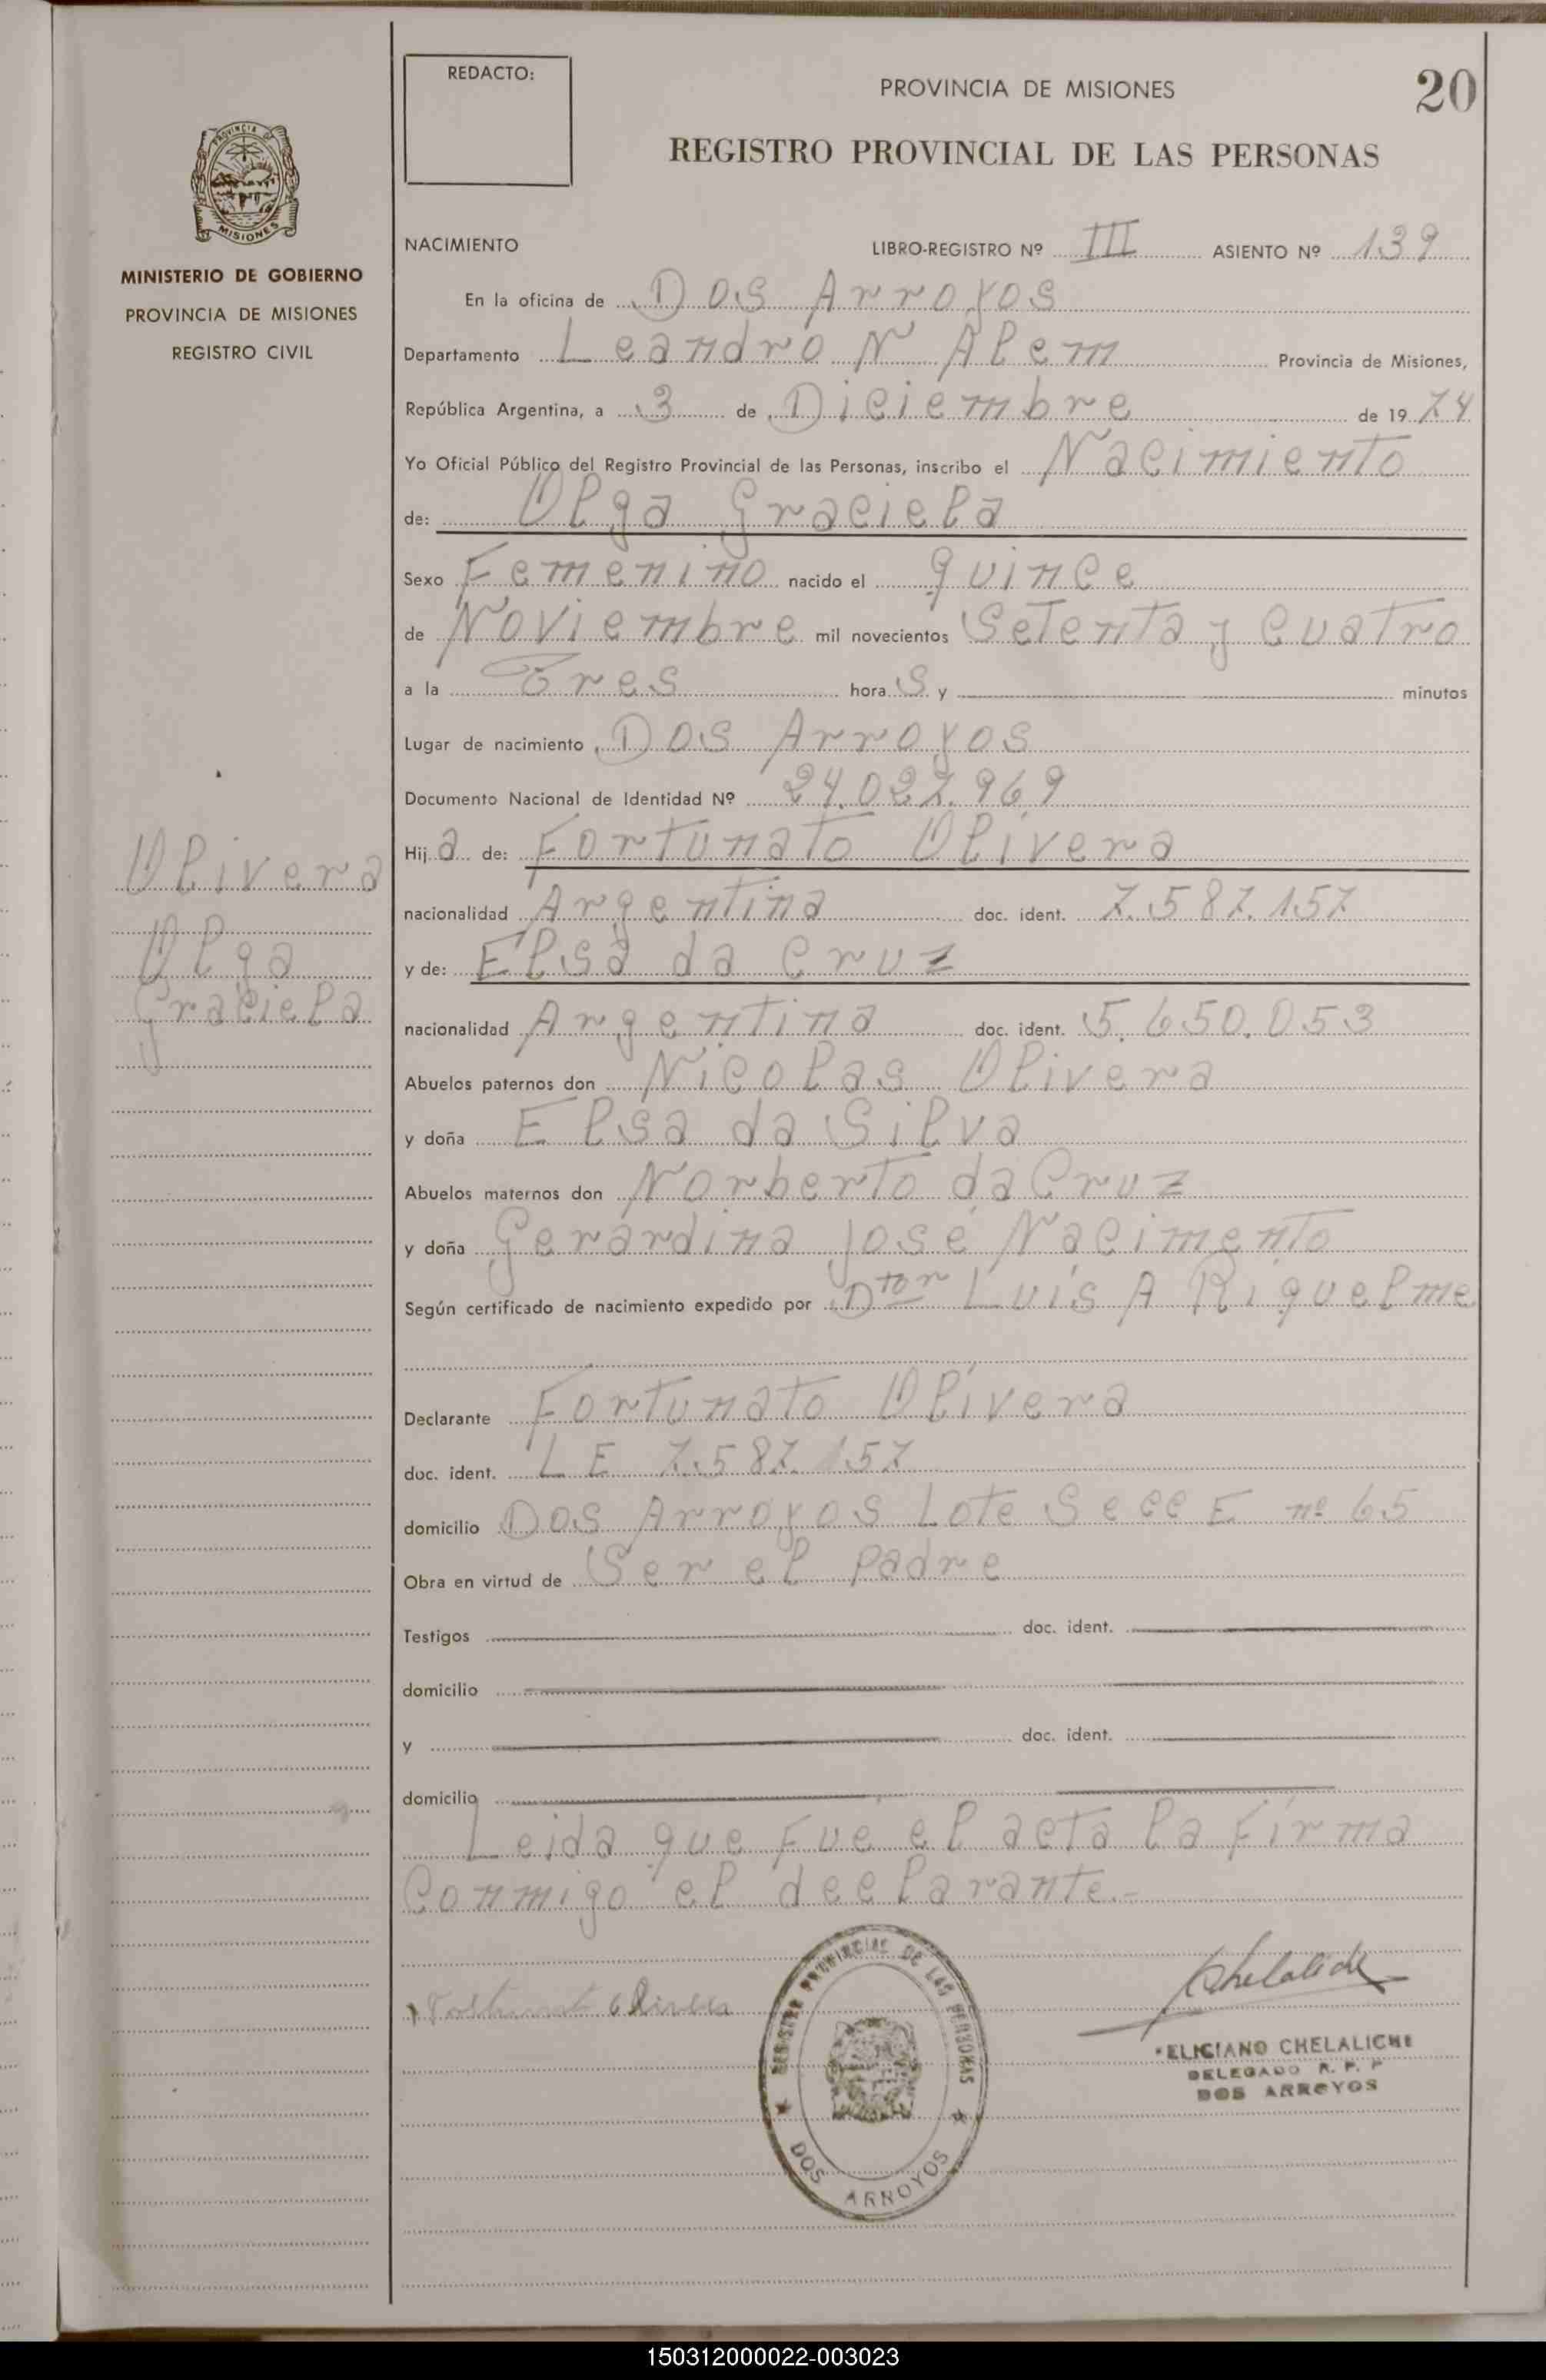 REDACTO:
PROVINCIA DE MISIONES
20
REGISTRO PROVINCIAL DE LAS PERSONAS
PROVINCIA DE
MISIONES
MINISTERIO DE GOBIERNO
PROVINCIA DE MISIONES
REGISTRO CIVIL
NACIMIENTO LIBRO-REGISTRO Nº III ASIENTO Nº 139
En la oficina de Dos Arroyos
Departamento Leandro N Alem Provincia de Misiones,
República Argentina, a 3 de Diciembre de 19 74
Yo Oficial Público del Registro Provincial de las Personas, inscribo el Nacimiento
de: Olga Graciela
Sexo Femenino nacido el quince
de Noviembre mil novecientos Setenta y Cuatro
a la Tres hora S y minutos
Lugar de nacimiento Dos Arroyos
Documento Nacional de Identidad Nº 24.027.969
Hij a de: Fortunato Olivera
nacionalidad Argentina doc. ident. 7.587.157
y de: Elsa da Cruz
nacionalidad Argentina doc. ident. 5.650.053
Abuelos paternos don Nicolas Olivera
y doña Elsa da Silva
Abuelos maternos don Norberto da Cruz
y doña Gerardina José Nacimento
Según certificado de nacimiento expedido por Dtor Luis A Riquelme
Declarante Fortunato Olivera
doc. ident. L E 7.587.157
domicilio Dos Arroyos Lote Secc E nº 65
Obra en virtud de Ser el padre
Testigos doc. ident.
domicilio
y doc. ident.
domicilio
Leida que fué el acta la firma
Conmigo el declarante.-
Olivera
Olga
Graciela
Fortunato Olivera
REGISTRO PROVINCIAL DE LAS PERSONAS
DOS ARROYOS
Chelaliche
ELICIANO CHELALICHE
DELEGADO R. P. P
DOS ARROYOS
150312000022-003023